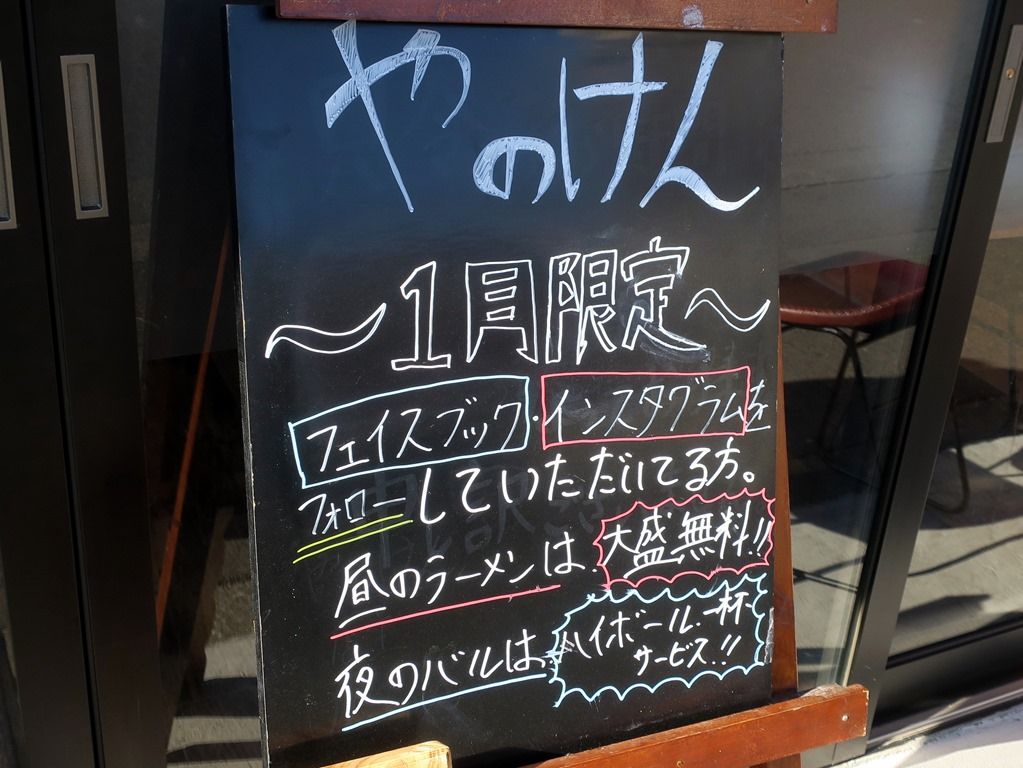 やのけん
～1月限定～
フェイスブック・インスタグラムを
フォローしていただいてる方。
昼のラーメンは 大盛無料!!
夜のバルは ハイボール一杯
サービス!!